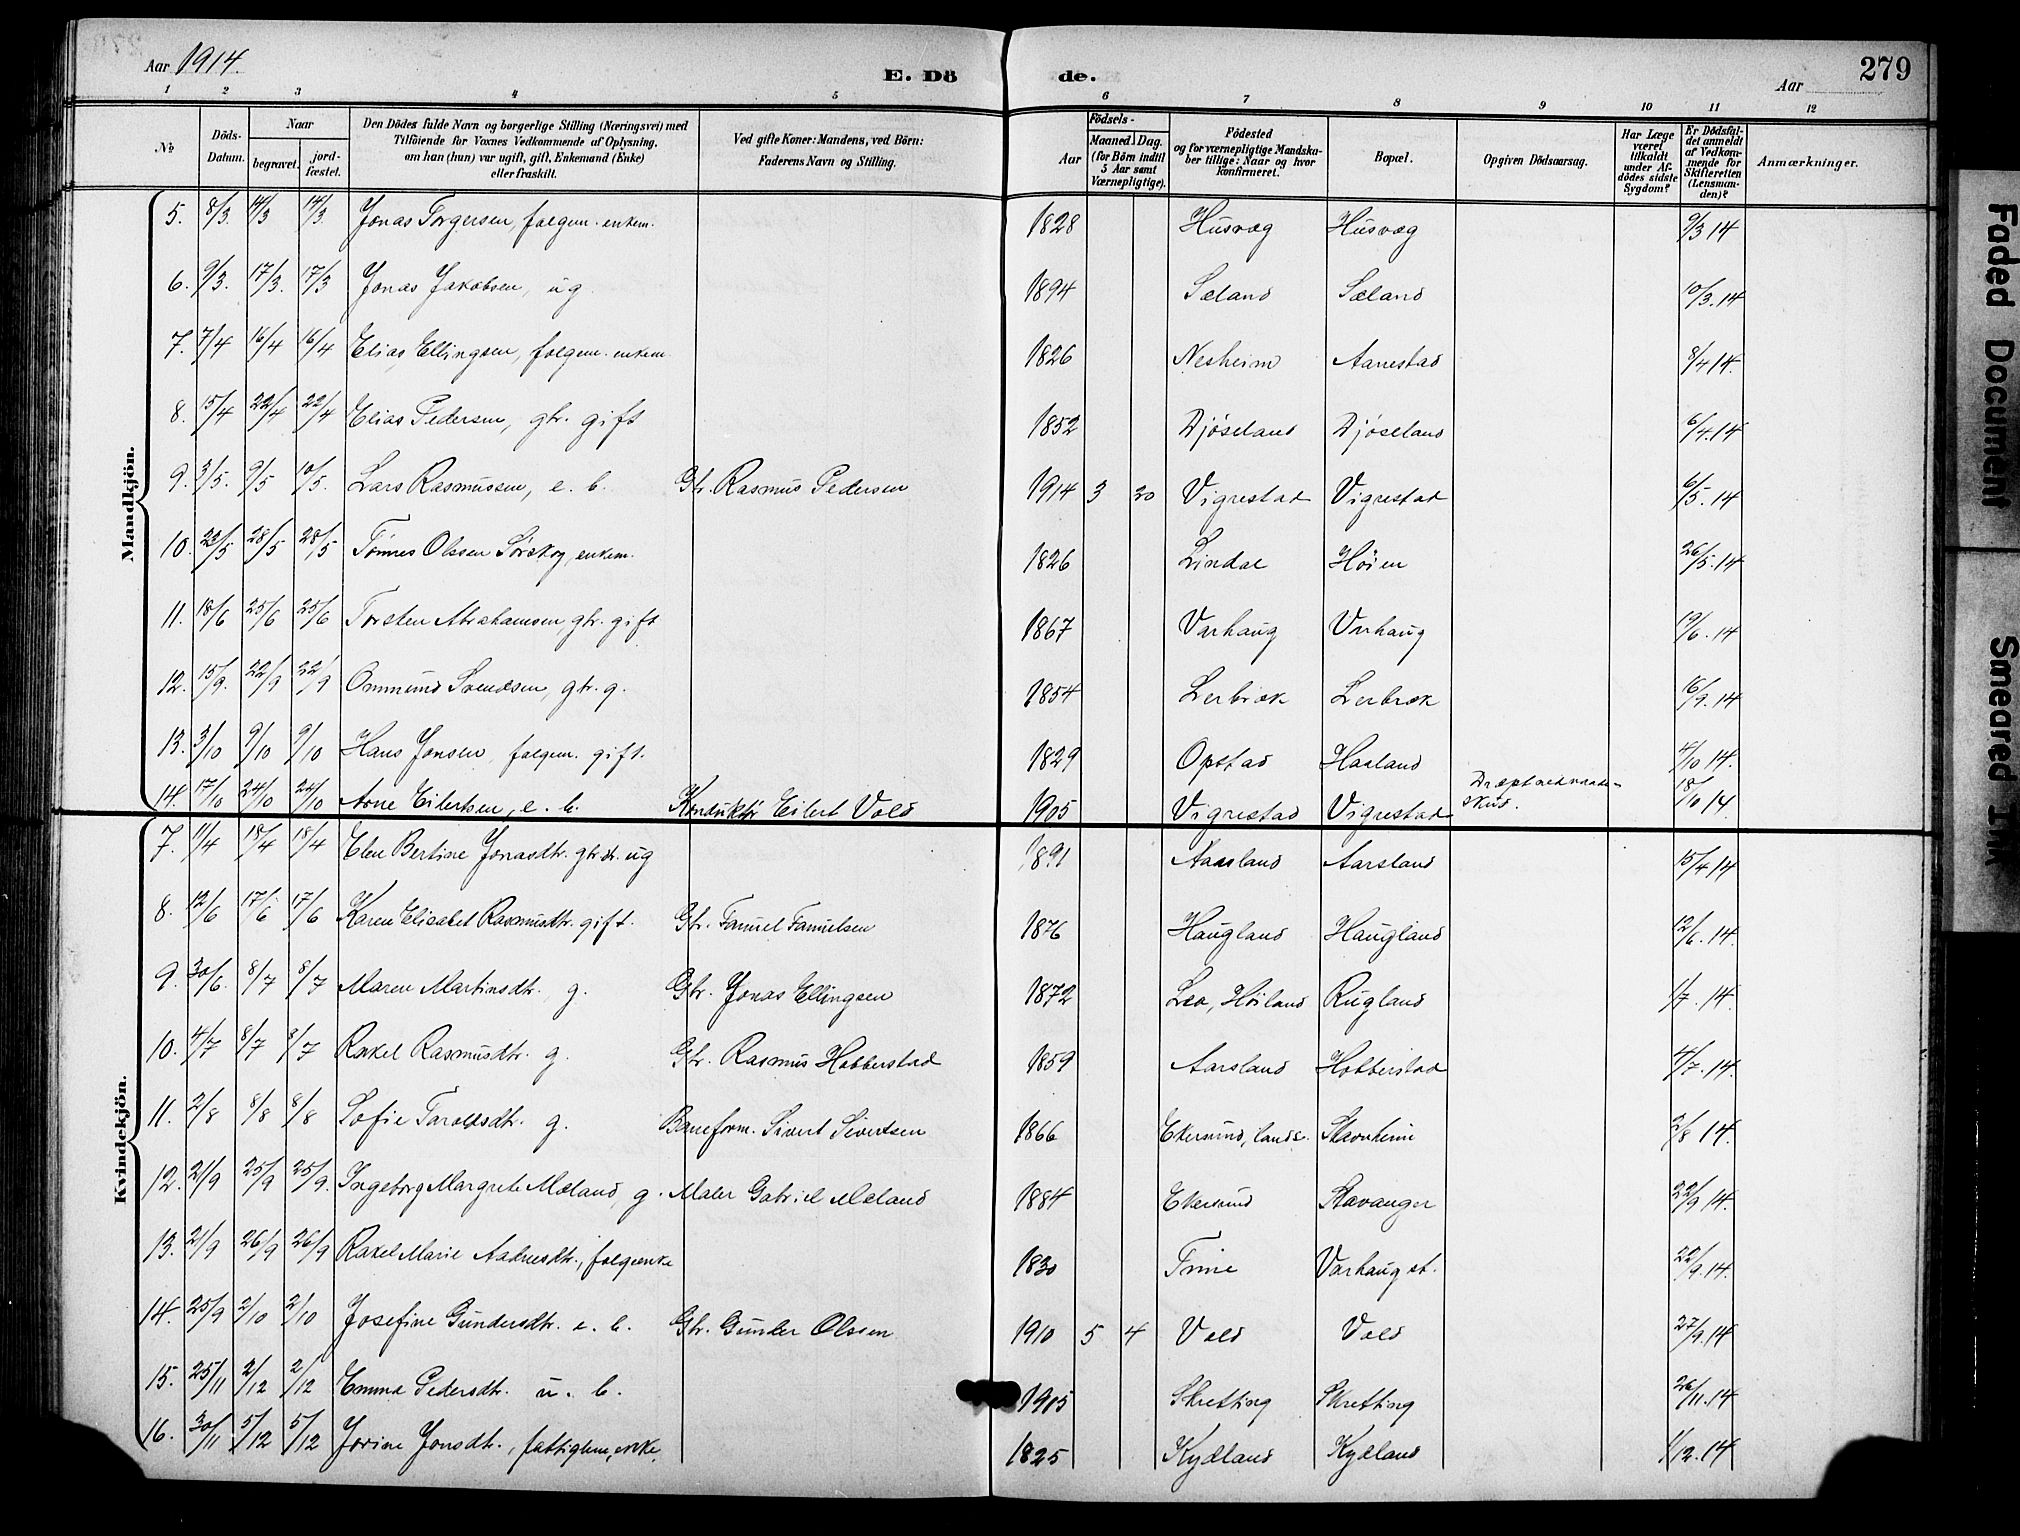 Aar 1914. E. Dö de. Aar 279
1 2 3 4 5 6 7 8 9 10 11 12
No Döds-Datum. Naar begravet. jord-fæstet. Den Dödes fulde Navn og borgerlige Stilling (Næringsvei) med Tilföiende for Voxnes Vedkommende af Oplysning, om han (hun) var ugift, gift, Enkemand (Enke) eller fraskilt. Ved gifte Koner: Mandens, ved Börn: Faderens Navn og Stilling. Födsels- Aar Maaned Dag. (for Börn indtil 5 Aar samt Værnepligtige). Födested og for værnepligtige Mandskaber tillige: Naar og hvor konfirmeret. Bopæl. Opgiven Dödsaarsag. Har Læge været tilkaldt under Afdödes sidste Sygdom? Er Dödsfaldet anmeldt af Vedkommende for Skifteretten (Lensmanden)? Anmærkninger.
Mandkjön.
5. 8/3 14/3 14/3 Jonas Torgersen, folgem. enkem. 1828 Husvæg Husvæg 9/3 14
6. 9/3. 17/3. 17/3 Jonas Jakobsen, ug. 1894 Sæland Sæland 10/3. 14
7. 7/4 16/4 16/4 Elias Ellingsen, folgem. enkem. 1826 Nesheim Aanestad 8/4 14.
8. 15/4 22/4 22/4 Elias Pedersen, gbr. gift 1852 Djöseland Djöseland 6/4. 14
9. 3/5. 9/5 10/5. Lars Rasmussen, e. b. Gbr. Rasmus Pedersen 1914 3 20 Vigrestad Vigrestad 6/5. 14
10. 23/5 28/5 28/5 Tönnes Olssen Sörskog, enkem. 1826 Lindal Höien 26/5. 14
11. 18/6 25/6 25/6 Torsten Abrahamsen, gbr. gift 1867 Varhaug Varhaug 19/6. 14
12. 15/9. 22/9 22/9 Ommund Svendsen, gbr. g. 1854 Lerbræk Lerbræk 16/9. 14
13. 3/10 9/10 9/10 Hans Jonsen, folgem. gift. 1829 Opstad Haaland 4/10 14.
14. 17/10 24/10 24/10 Arne Eilertsen, e. b. Konduktör Eilert Vold 1905 Vigrestad Vigrestad Dræpt ved vaadeskud. 18/10 14
Kvindekjön.
7. 11/4 18/4 18/4 Elen Bertine Jonasdtr. gbr. dr. ug 1891 Aarsland Aarsland 15/4 14
8. 12/6 17/6 17/6 Karen Elisabet Rasmusdtr. gift. Gbr. Samuel Samuelsen 1876 Haugland Haugland 12/6. 14.
9. 30/6. 8/7 8/7 Maren Martinsdtr., g. Gbr. Jonas Ellingsen 1872 Lea, Höiland Rugland 1/7. 14.
10. 4/7 8/7 8/7 Rakel Rasmusdtr. g. Gbr. Rasmus Hobberstad 1859 Aarsland Hobberstad 4/7. 14.
11. 2/8 8/8 8/8 Sofie Taroldsdtr. g. Baneform. Sivert Sivertsen 1866 Ekersund, lands. Stavnheim 3/8 14.
12. 21/9 25/9 25/9. Ingeborg Margrete Mæland, g. Maler Gabriel Mæland 1884 Ekersund Stavanger 22/9 14.
13. 21/9 26/9 26/9 Rakel Marie Aadnesdtr., folgeenke 1830 Time Varhaug st. 22/9. 14.
14. 25/9 2/10 2/10 Josefine Gundersdtr. e. b. Gbr. Gunder Olssen 1910 5 4 Vold Vold 27/9. 14
15. 25/11 2/12 2/12 Emma Pedersdtr. u. b. 1905 Skretting Skretting 26/11. 14
16. 30/11 5/12 5/12 Jorine Jonsdtr., fattiglem, enke. 1825 Kydland Kydland 1/12. 14
Faded Document
Smeared Ink